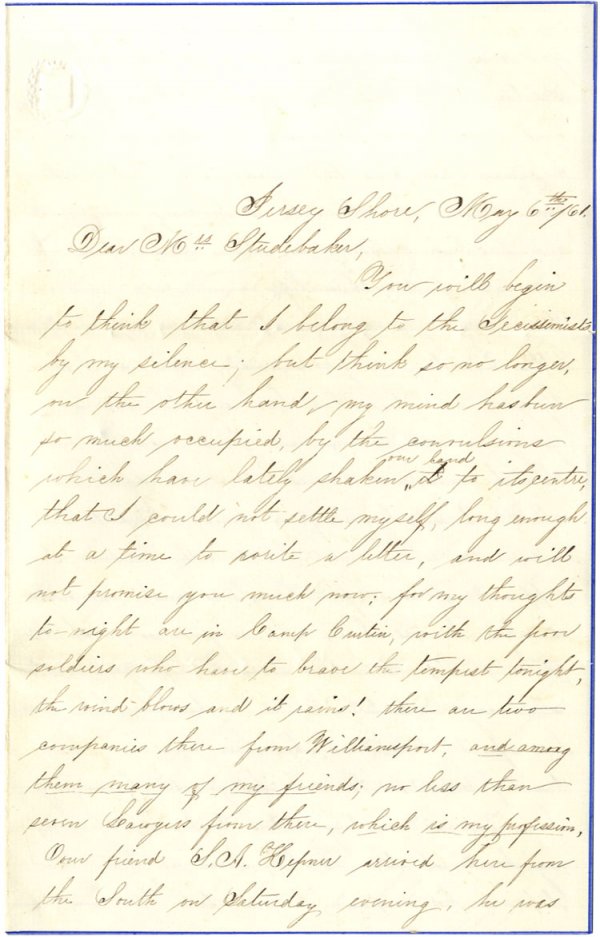 Jersey Shore, May 6th/61.
Dear Mrs Studebaker,
You will begin
to think that I belong to the Secissionists
by my silence; but think so no longer,
on the other hand, my mind has been
so much occupied, by the convulsions
which have lately shaken our land it to its centre,
that I could not settle myself, long enough
at a time to write a letter, and will
not promise you much now; for my thoughts
to-night are in Camp Curtin, with the poor
soldiers who have to brave the tempest tonight,
the wind blows and it rains! there are two
companies there from Williamsport, and among
them many of my friends; no less than
seven Lawyers from there, which is my profession,
Our friend S. A. Hepner arrived here from
the South on Saturday evening, he was